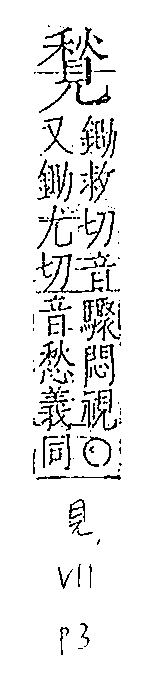 鋤救切音驟悶視○
又鋤尤切音愁義同
見,
VII
P3